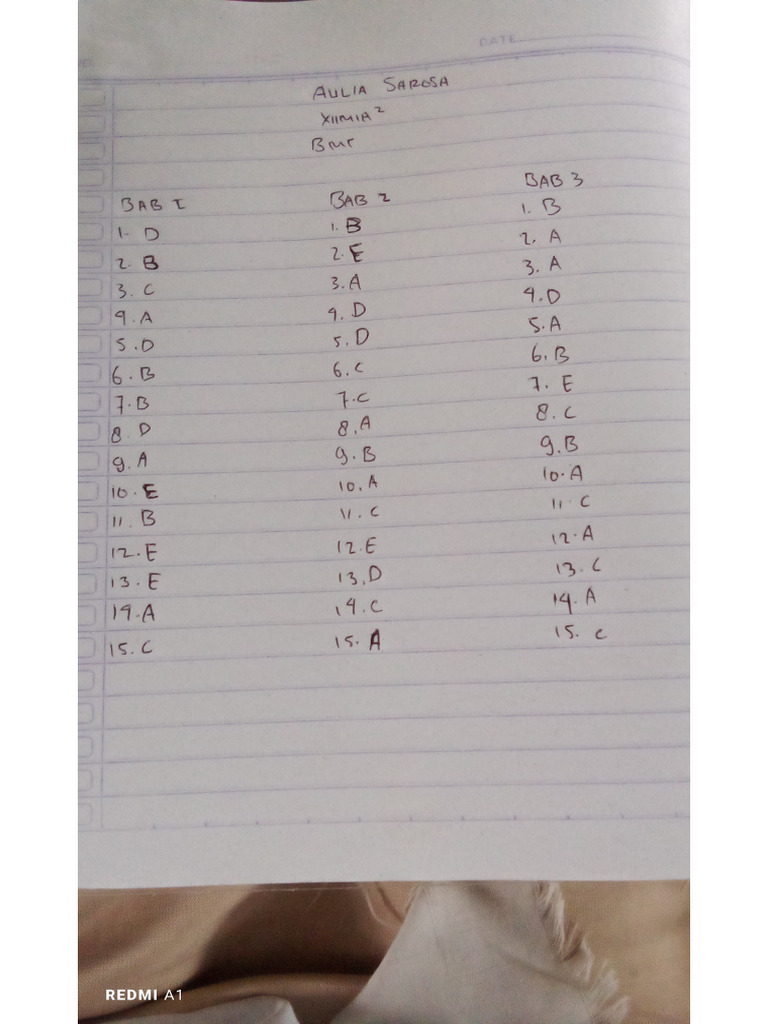 DATE
AULIA SAROSA
XIIMIA²
BMR
BAB I
1. D
2. B
3. C
4. A
5. D
6. B
7. B
8. D
9. A
10. E
11. B
12. E
13. E
14. A
15. C
BAB 2
1. B
2. E
3. A
4. D
5. D
6. C
7. C
8. A
9. B
10. A
11. C
12. E
13. D
14. C
15. A
BAB 3
1. B
2. A
3. A
4. D
5. A
6. B
7. E
8. C
9. B
10. A
11. C
12. A
13. C
14. A
15. C
REDMI A1